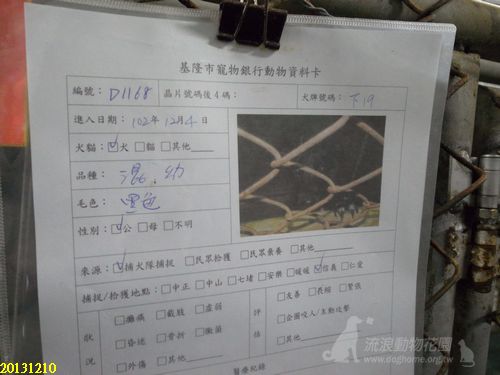 基隆市寵物銀行動物資料卡
編號：D1168 晶片號碼後4碼： 犬牌號碼：下19
進入日期：102年12月4日
犬貓：☑犬 □貓 □其他
品種：混．幼
毛色：黑色
性別：☑公 □母 □不明
來源：☑捕犬隊捕捉 □民眾拾獲 □民眾棄養 □其他
捕捉/拾獲地點：□中正 □中山 □七堵 □安樂 □暖暖 ☑信義 □仁愛
狀況 □癱瘓 □截肢 □虛弱
□昏迷 □骨折 □黴菌
□外傷 □其他
評估 □友善 □長縮 □緊張
□企圖咬人/主動攻擊
醫療紀錄
流浪動物花園
http://www.doghome.org.tw
20131210